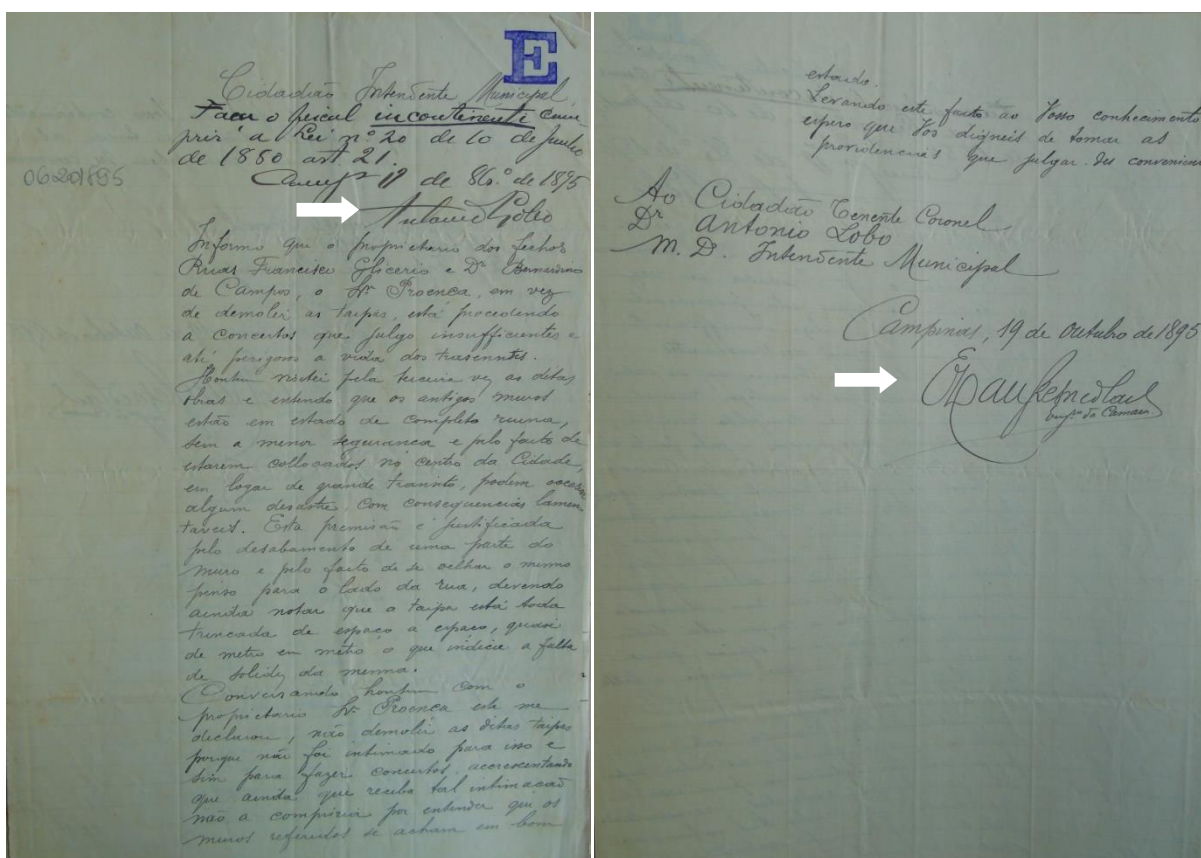 E
Cidadão Intendente Municipal
Faça o fiscal incontinenti cum
prir a Lei nº 20 de 10 de Junho
de 1880 art. 21.
Camp.s 19 de 8bº. de 1895
06201895
Antonio Lobo
Informo que o proprietario dos fechos
Ruas Francisco Glicerio e Dr. Bernardino
de Campos, o Snr. Proença, em vez
de demolir as taipas, está procedendo
a concertos que julgo insufficientes e
até perigosos a vida dos transeuntes.
Hontem visitei pela terceira vez as ditas
obras e entendo que os antigos muros
estão em estado de completa ruina,
sem a menor segurança e pelo facto de
estarem collocados no centro da Cidade,
em logar de grande transito, podem
algum desastre com consequencias lamen
taveis. Esta é justificada
pelo desabamento de uma parte do
muro e pelo facto de se achar o mesmo
penso para o lado da rua, devendo
ainda notar que a taipa está toda
trincada de espaço a espaço, quasi
de metro em metro o que indicie a falta
de solidez da mesma.
Conversando hontem com o
proprietario Snr. Proença este me
declarou, não demolir as ditas taipas
porque não foi intimado para isso e
sim para fazer concertos, accrescentando
que ainda que receba tal intimação
não a compriria por entender que os
muros referidos se acham em bom
estado.
Levando este facto ao Vosso conhecimento
espero que Vos digneis de tomar as
providencias que julgar des convenien
Ao Cidadão Tenente Coronel
Dr. Antonio Lobo
M. D. Intendente Municipal
Campinas, 19 de Outubro de 1895
da Camara